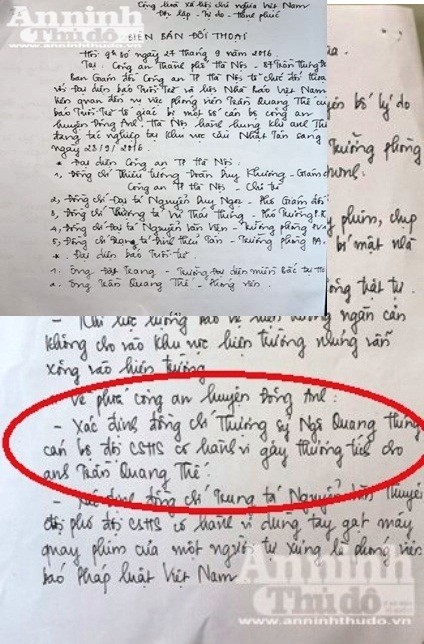 An ninh
Thủ đô
Cộng hòa xã hội chủ nghĩa Việt Nam
Độc lập - Tự do - Hạnh phúc
BIÊN BẢN ĐỐI THOẠI
Hồi 9h 50 ngày 27 tháng 9 năm 2016.
Tại: Công an Thành phố Hà Nội - 87 Trần Hưng Đạo
Ban Giám đốc Công an TP Hà Nội tổ chức đối thoại
với Đại diện báo Tuổi trẻ và Hội Nhà báo Việt Nam
liên quan đến vụ việc phóng viên Trần Quang Thế
báo Tuổi trẻ tố giác bị một số cán bộ công an
huyện Đông Anh, Hà Nội hành hung khi anh Thế
đang tác nghiệp tại khu vực cầu Nhật Tân sáng
ngày 23/9/2016.
Đại diện Công an TP Hà Nội:
1, Đồng chí Thiếu tướng Đoàn Duy Khương - Giám
Công an TP Hà Nội - Chủ trì
2, Đồng chí Đại tá Nguyễn Duy Ngọc - Phó Giám đốc
3, Đồng chí Thượng tá Vũ Thái Thông - Phó Trưởng
4, Đồng chí Đại tá Nguyễn Văn Viện - Trưởng phòng
5, Đồng chí Trung tá Đinh Tân - Trưởng phòng
Đại diện báo Tuổi trẻ
1, Ông Trang - Trưởng Đại diện miền Bắc
2, Ông Trần Quang Thế - Phóng viên.
lý do
Trưởng phòng
phim, chụp
bí mật nhà
trật tự.
- Khi lực lượng bảo vệ hiện trường ngăn cản
không cho vào khu vực hiện trường nhưng vẫn
xông vào hiện trường
Về phía công an huyện Đông Anh:
- Xác định đồng chí Thượng sỹ Ngô Quang Hưng
cán bộ đội CSHS có hành vi gây thương tích cho
anh Trần Quang Thế.
- Xác định đồng chí Trung tá Nguyễn Văn Thuyên
đội phó đội CSHS có hành vi dùng tay gạt máy
quay phim của một người tự xưng là phóng viên
báo Pháp luật Việt Nam
An ninh
Thủ đô
www.anninhthudo.vn